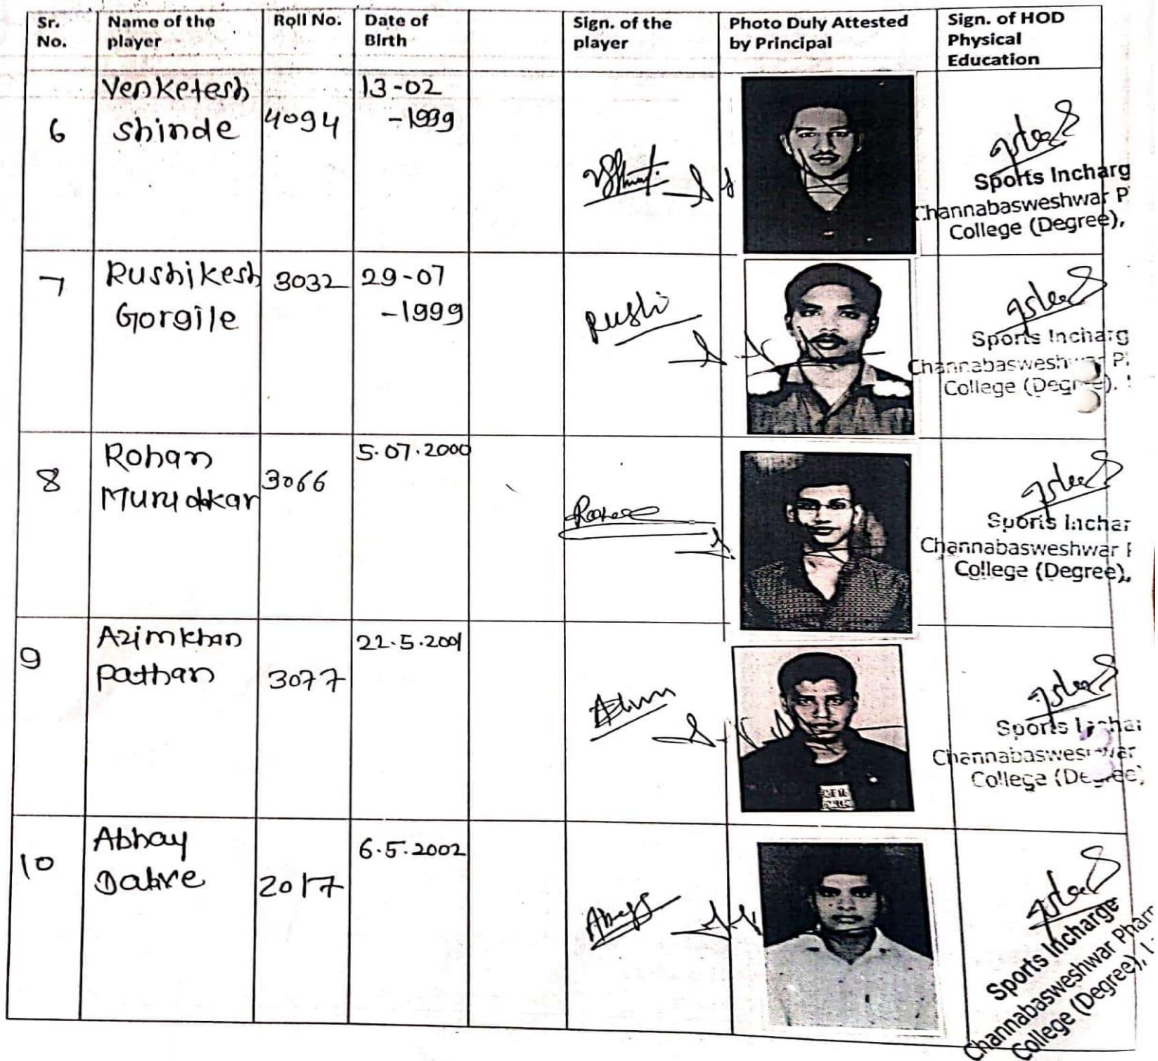 Sr. No.
Name of the player
Roll No.
Date of Birth
Sign. of the player
Photo Duly Attested by Principal
Sign. of HOD Physical Education
6
Venketesh
shinde
4094
13-02
-1999
Sports Incharg
Channabasweshwar P
College (Degree),
7
Rushikesh
Gorgile
3032
29-07
-1999
Rushi
Sports Incharg
Channabasweshwar P
College (Degree),
8
Rohan
Murudkar
3066
5.07.2000
Sports Inchar
Channabasweshwar
College (Degree),
9
Azimkhan
Pathan
3077
22.5.2001
Sports Inchar
Channabasweshwar
College (Degree)
10
Abhay
Dahre
2017
6.5.2002
Sports Incharge
Channabasweshwar Pharm
College (Degree),